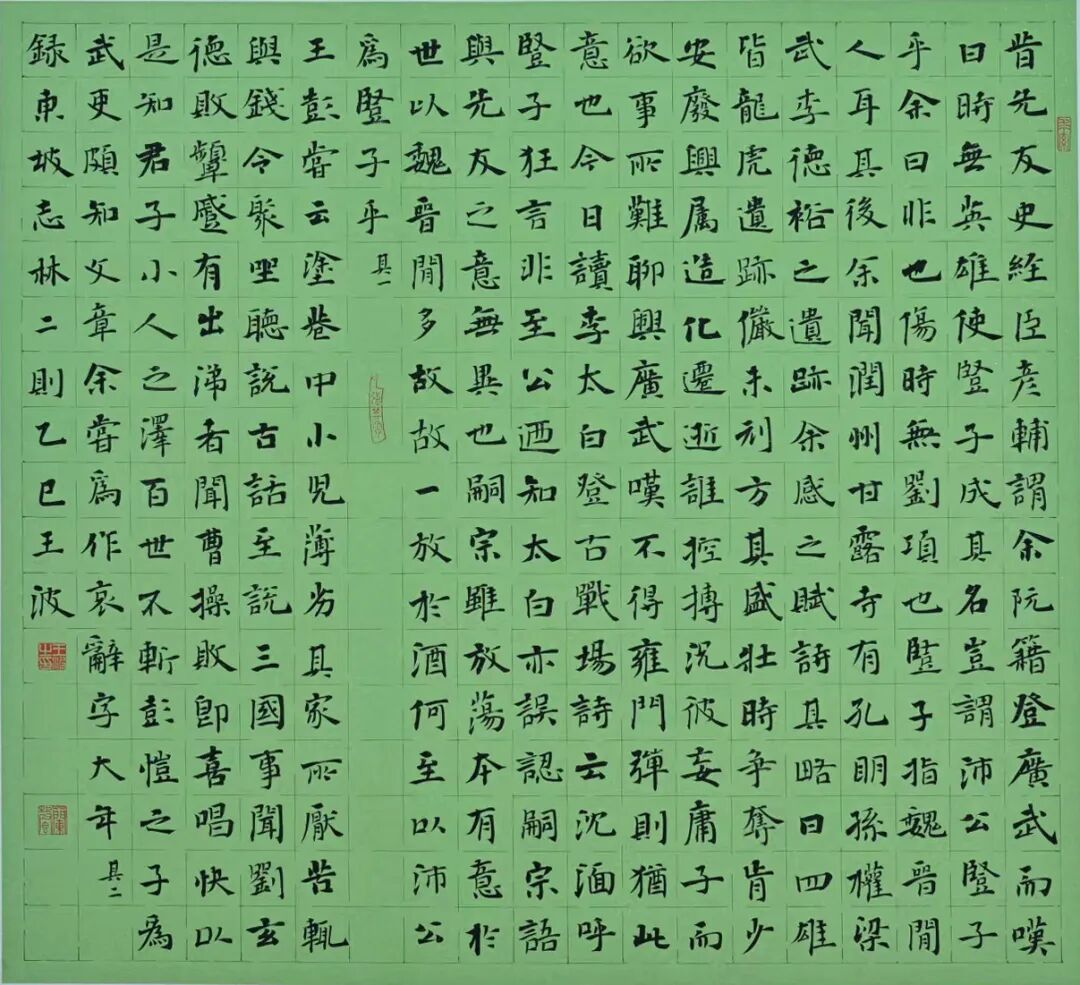 昔先友史經臣彦輔謂余阮籍登廣武而嘆
曰時無英雄使豎子成其名豈謂沛公豎子
乎余曰非也傷時無劉項也豎子指魏晉閒
人耳其後余聞潤州甘露寺有孔明孫權梁
武李德裕之遺跡余感之賦詩其略曰四雄
皆龍虎遺跡儼未刓方其盛壯時爭奪肯少
安廢興属造化遷逝誰控摶況彼妄庸子而
欲事所難聊興廣武嘆不得雍門彈則猶此
意也今日讀李太白登古戰場詩云沈湎呼
豎子狂言非至公迺知太白亦誤認嗣宗語
與先友之意無異也嗣宗雖放蕩本有意於
世以魏晉閒多故故一放於酒何至以沛公
爲豎子乎 其一
王彭嘗云塗巷中小兒薄劣其家所厭苦輒
與錢令聚坐聽說古話至說三國事聞劉玄
德敗顰蹙有出涕者聞曹操敗即喜唱快以
是知君子小人之澤百世不斬彭愷之子爲
武吏頗知文章余嘗爲作哀辭字大年 其二
録東坡志林二則乙巳王波